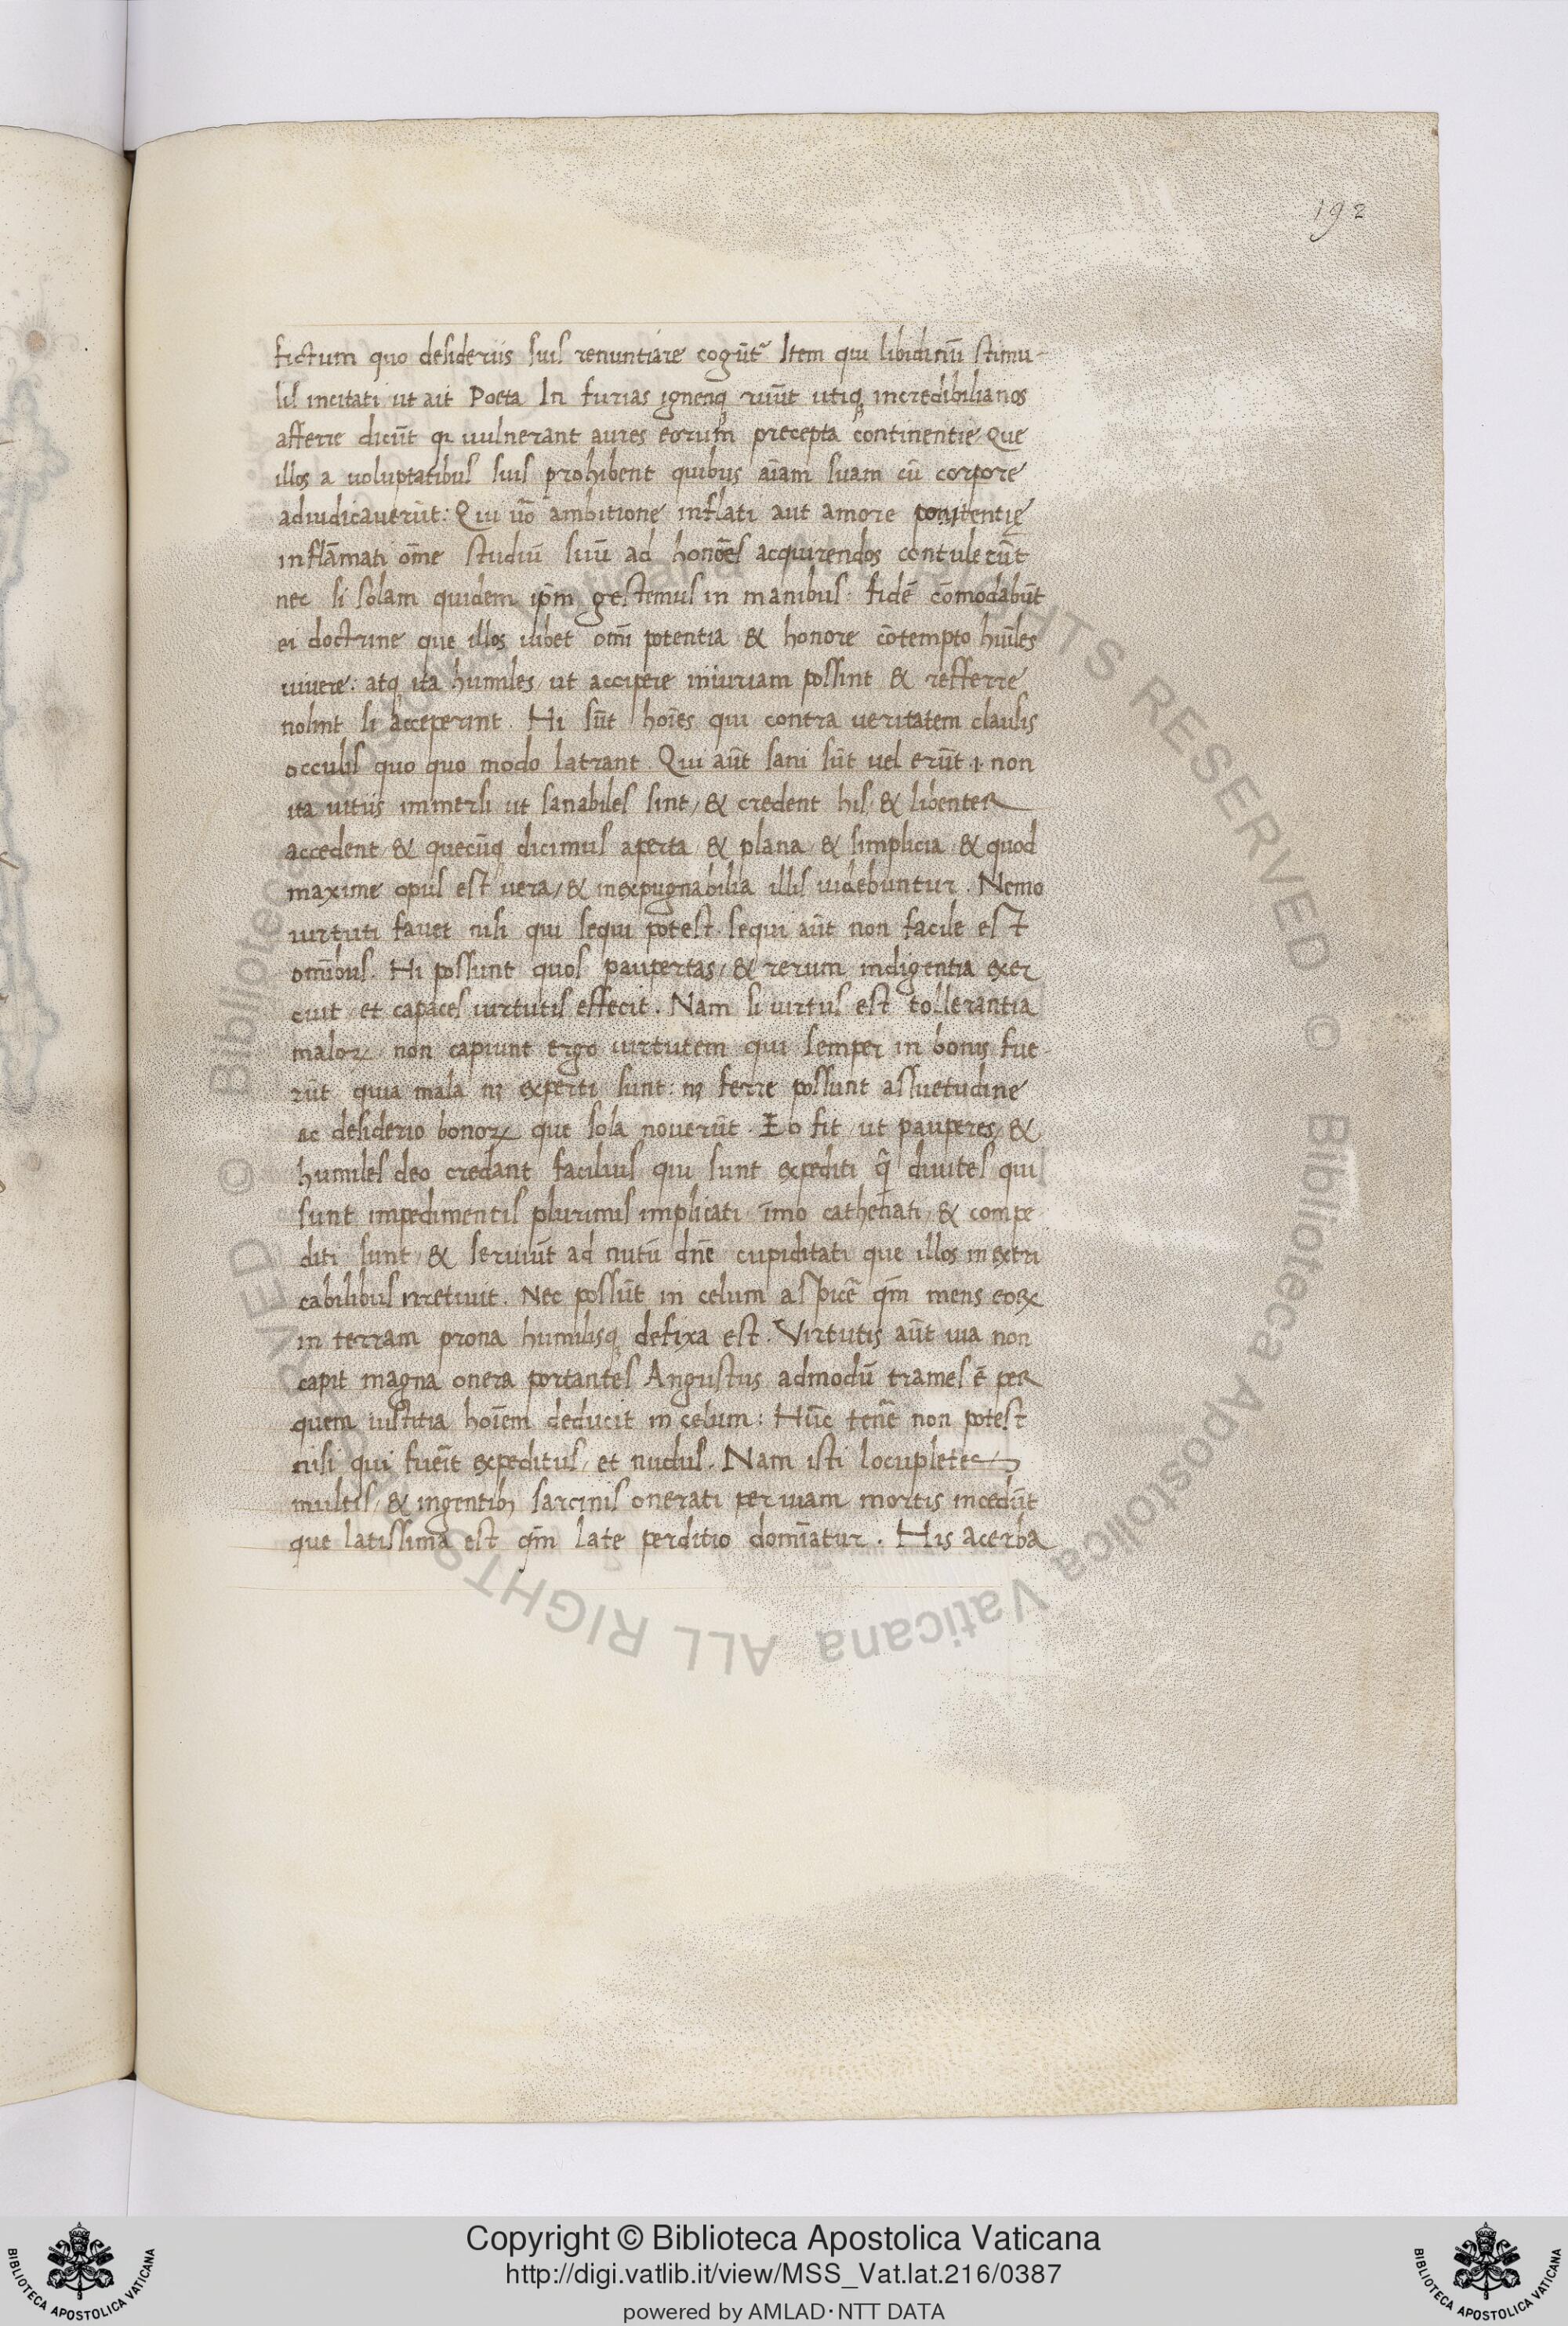 192
fictum quo desideriis suis renuntiare cogūt᷑ Item qui libidinū stimu-
lis incitati ut ait Poeta In furias ignenq; ruūt utiq; incredibilia nos
afferre dicūt q uulnerant aures eorum precepta continentie Que
illos a uoluptatibus suis prohibent quibus aīam suam cū corpore
adiudicauerūt: Qui ūo ambitione inflati aut amore
inflāmati om̄e studiū suū ad honoēs acquirendos contulerūt
nec si solam quidem ip̄m gestemus in manibus fidē cōmodabūt
ei doctrine que illos iubet om̄i potentia & honore cōtempto hūiles
uiuere: atq; ita humiles ut accipere iniuriam possint & refferre
nolint si acceperint. Hi sūt hoīes qui contra ueritatem clausis
occulis quo quo modo latrant. Qui aūt sani sūt uel erūt .i. non
ita uitiis immersi ut sanabiles sint / & credent his / & libenter
accedent & quecūq; dicimus aperta & plana & simplicia & quod
maxime opus est uera / & inexpugnabilia illis uidebuntur. Nemo
uirtuti fauet nisi qui sequi potest. sequi aūt non facile est
omībus. Hi possunt quos paupertas / & rerum indigentia exer
cuit / et capaces uirtutis effecit. Nam si uirtus est tollerantia
maloꝝ / non capiunt ergo uirtutem qui semper in bonis fue-
rūt quia mala nꝫ experti sunt: nꝫ ferre possunt assuetudine
ac desiderio bonoꝝ que sola nouerūt. Eo fit / ut pauperes / &
humiles deo credant facilius qui sunt expediti q̄ diuites qui
sunt impedimentis plurimis implicati īmo cathenati / & compe
diti sunt / & seruiūt ad nutū dn̄e cupiditati que illos inextri
cabilibus irretiuit. Nec possūt in celum aspicē qm̄ mens eoꝝ
in terram prona humilisq; defixa est. Virtutis aūt uia non
capit magna onera portantes Angustus admodū trames ē per
quem iustitia hoīem deducit in celum: Hūc tenē non potest
nisi qui fueīt expeditus / et nudus. Nam isti locupletes
multis / & ingentibꝫ sarcinis onerati per uiam mortis incedūt
que latissima est qm̄ late perditio domīatur. His acerba
© Biblioteca Apostolica Vaticana ALL RIGHTS RESERVED © Biblioteca Apostolica Vaticana ALL RIGHTS RESERVED
Copyright © Biblioteca Apostolica Vaticana
http://digi.vatlib.it/view/MSS_Vat.lat.216/0387
powered by AMLAD·NTT DATA
BIBLIOTECA APOSTOLICA VATICANA
BIBLIOTECA APOSTOLICA VATICANA